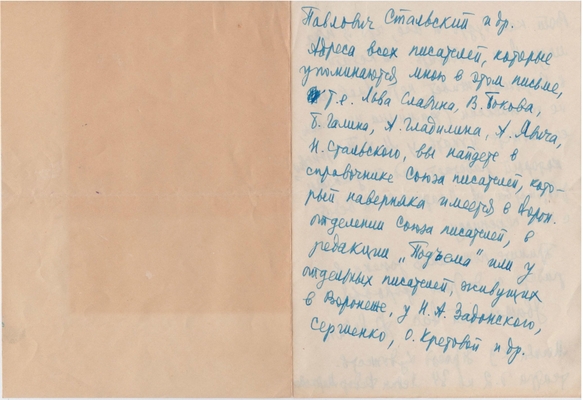 Павлович Стальский и др.
Адреса всех писателей, которые
упоминаются мною в этом письме,
т.е. Льва Славина, В. Бокова,
Б. Галина, А. Гладилина, А. Явича,
Н. Стальского, вы найдете в
справочнике Союза писателей, кото-
рый наверняка имеется в Ворон.
отделении Союза писателей, в
редакции „Подъема“ или у
отдельных писателей, живущих
в Воронеже, у Н. А. Задонского,
Сергиенко, О. Кретовой и др.